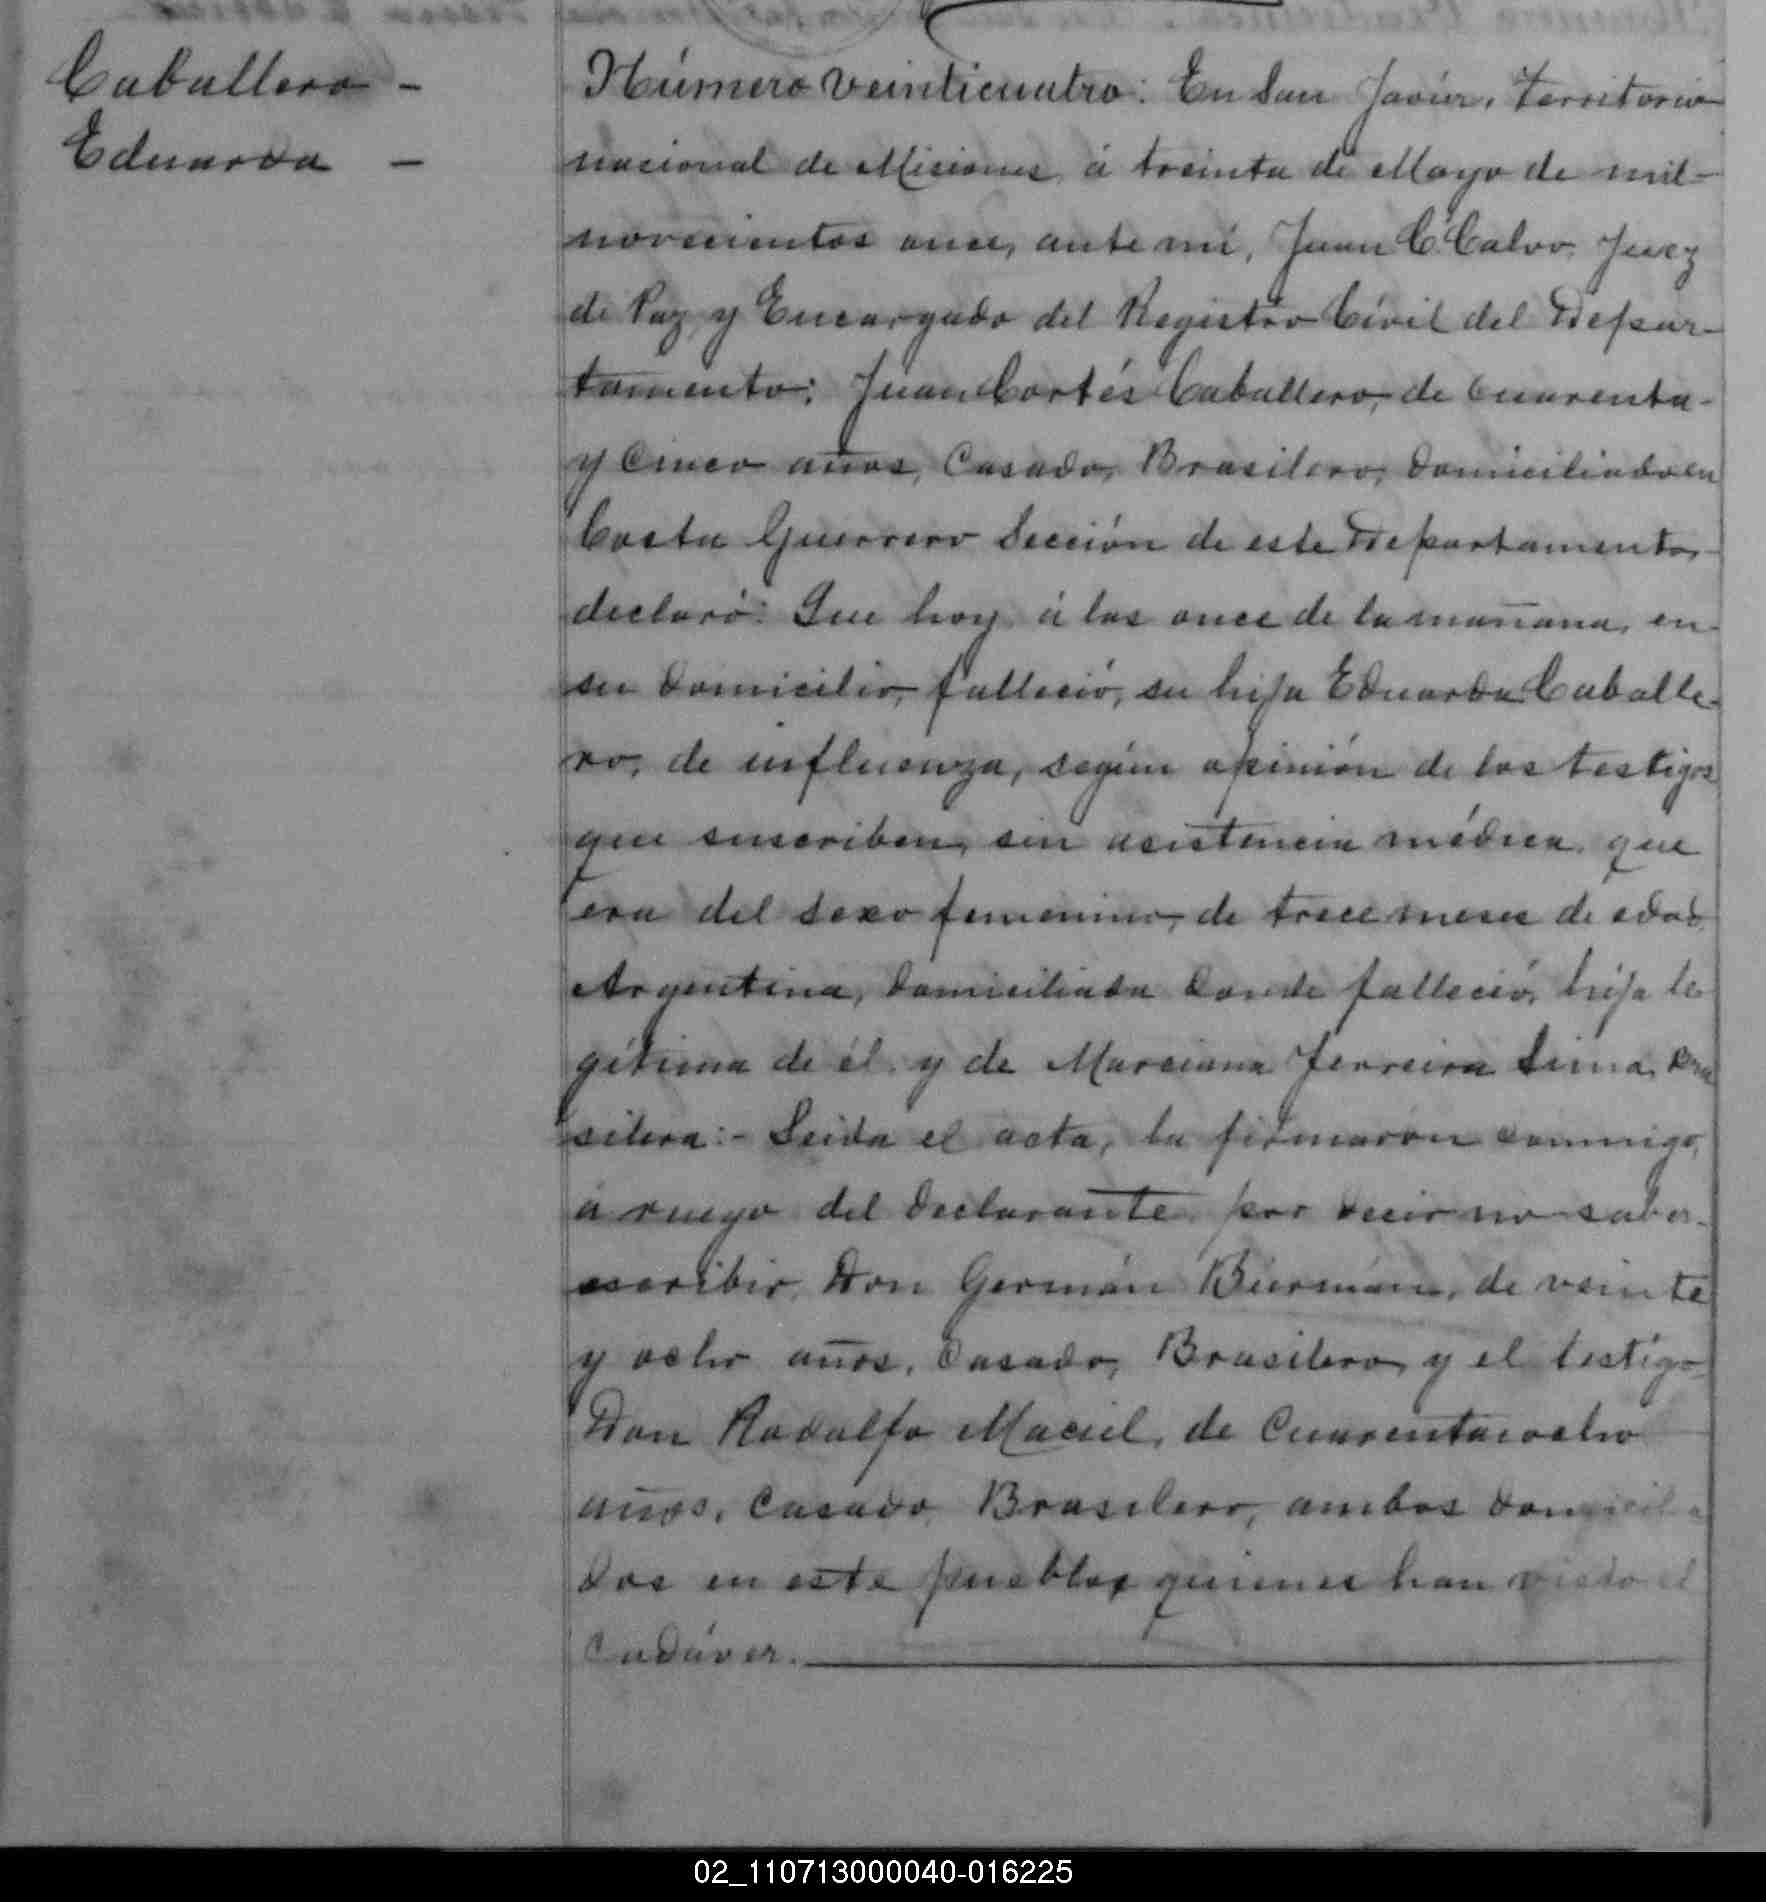 Caballero -
Eduarda -
Número veinticuatro: En San Javier, Territorio
nacional de Misiones, á treinta de Mayo de mil-
novecientos once, ante mí, Juan C. Calvo, Juez
de Paz y Encargado del Registro Civil del Depar-
tamento; Juan Cortés Caballero, de cuarenta-
y cinco años, casado, Brasilero, domiciliado en
Costa Guerrero Sección de este Departamento,
declaró: Que hoy á las once de la mañana, en-
su domicilio, falleció, su hija Eduarda Caballe-
ro, de influenza, según opinión de los testigos
que suscriben, sin asistencia médica, que
era del sexo femenino, de trece meses de edad,
Argentina, domiciliada donde falleció, hija le
gítima de él y de Marciana Ferreira Lima, Bra
silera:- Leida el acta, la firmaron conmigo,
á ruego del declarante por decir no saber-
escribir, Don Germán Bierman, de veinte
y ocho años, casado, Brasilero, y el testigo
Don Rodolfo Maciel, de cuarentaiocho
años, casado, Brasilero, ambos domicilia
dos en este pueblo, quienes han visto el
cadáver.
02_110713000040-016225